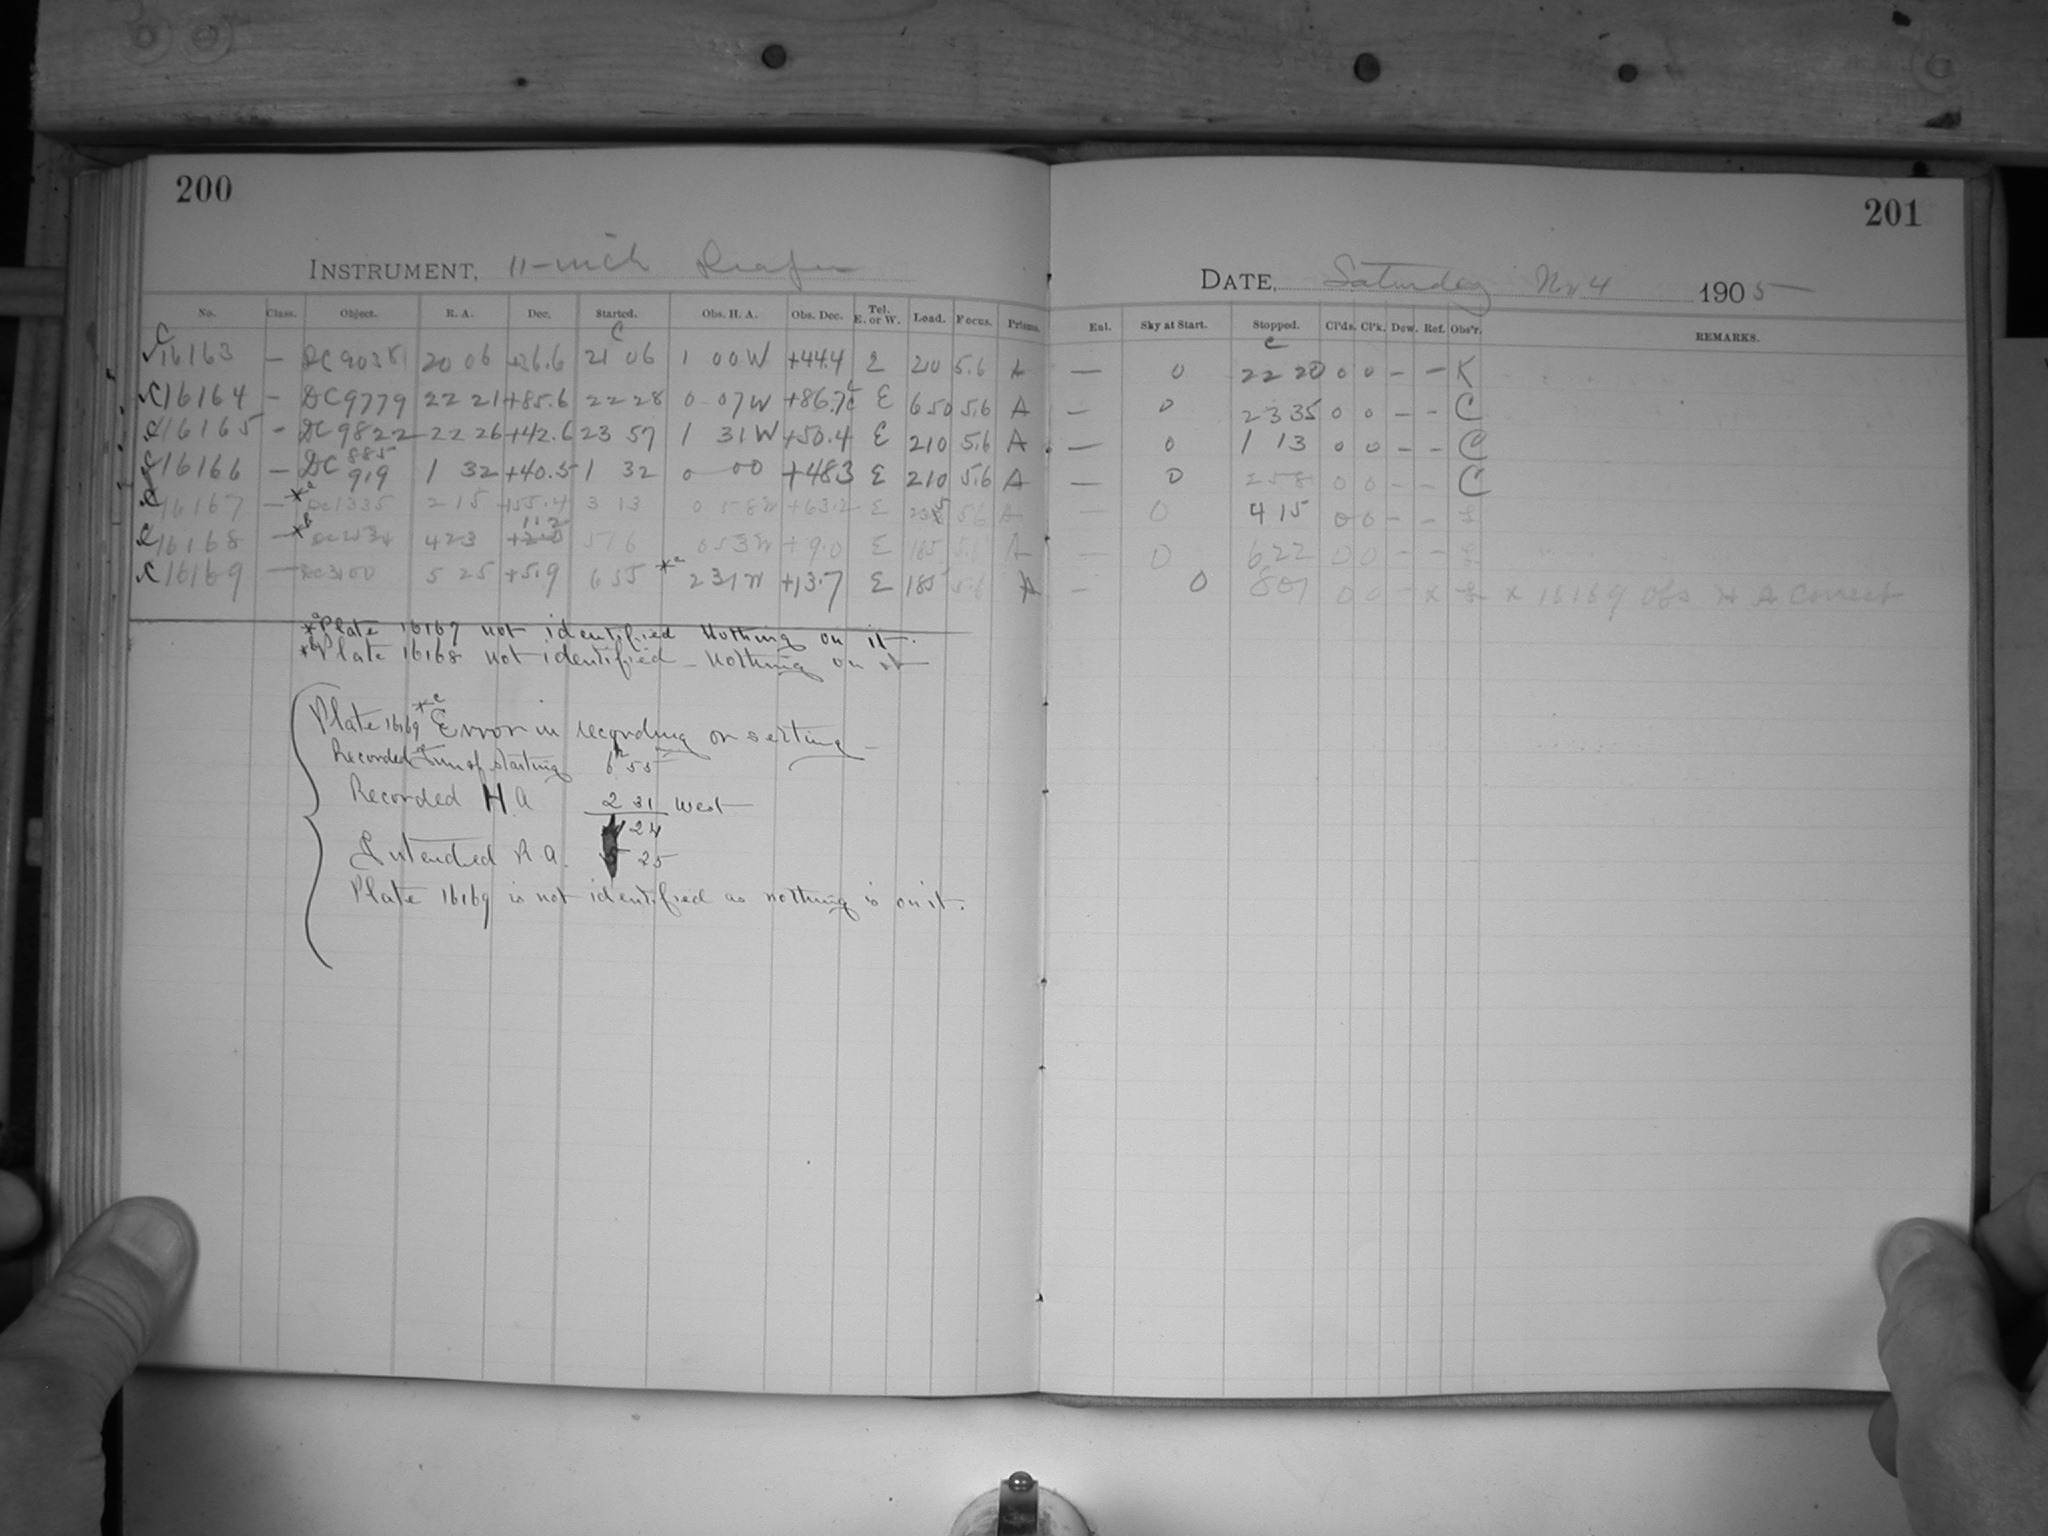 200
201
INSTRUMENT, 11-inch Draper
DATE, Saturday Nov 4 1905
No. Class. Object. R. A. Dec. Started. Obs. H. A. Obs. Dec. Tel. E. or W. Load. Focus. Prisms. Enl. Sky at Start. Stopped. Cl'ds. Cl'k. Dew. Ref. Obs'r. REMARKS.
C16163 — DC 9038 20 06 +36.6 21 06 1 00 W +44.4 E 210 5.6 A — 0 22 20 0 0 – – K
C16164 – DC 9779 22 21 +85.6 22 28 0 07 W E 650 5.6 A — 0 23 35 0 0 – – C
C16165 – DC 9822 22 26 +42.6 23 57 1 31 W +50.4 E 210 5.6 A — 0 1 13 0 0 – – C
C16166 — DC 885 919 1 32 +40.5 1 32 0 00 +48.3 E 210 5.6 A — 0 2 58 0 0 – – C
C16167 — *a DC 1335 2 15 +55.4 3 13 0 58 W +63.2 E 5.6 A — 0 4 15 0 0 – – L
C16168 — *b 4 23 11.2 5 16 0 53 W +9.0 E 185 5.6 A — 0 6 22 0 0 – – L
C16169 — DC 3100 5 25 +5.9 6 55 *c 2 31 W +13.7 E 185 5.6 A — 0 8 07 0 0 – x L x 16169 Obs H A Correct
*a Plate 16167 not identified Nothing on it.
*b Plate 16168 not identified – Nothing on it
Plate 16169 *c Error in recording or setting –
Recorded time of starting 6h 55
Recorded H. A 2 31 West
4 24
Intended R A. 5 25
Plate 16169 is not identified as nothing is on it.